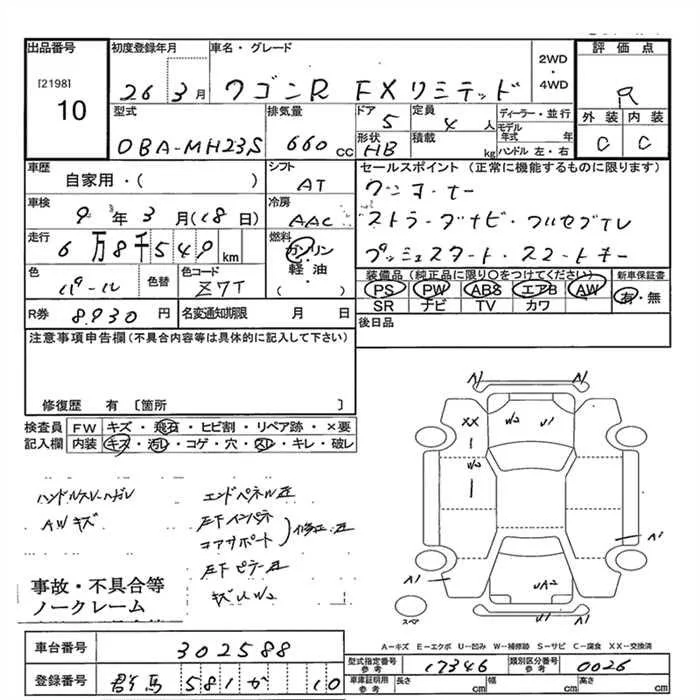 出品番号 初度登録年月 車名・グレード 2WD・4WD 評価点
[2198] 10 26 3月 ワゴンR FXリミテッド R
型式 排気量 ドア 5 定員 4人 ディーラー・並行 外装 内装
DBA-MH23S 660cc 形状 HB 積載 kg モデル年式 年 ハンドル 左・右 C C
車歴 シフト セールスポイント(正常に機能するものに限ります)
自家用・( ) AT ワンオーナー
車検 9年3月(18日) 冷房 AAC ストラーダナビ・フルセグTV
走行 6万8千549km 燃料 ガソリン・軽油( ) プッシュスタート・スマートキー
色 パール 色替 色コード Z7T 装備品(純正品に限り○をつけてください) 新車保証書
PS PW ABS エアB AW 有・無
SR ナビ TV カワ
R券 8,930円 名変通知期限 月 日 後日品
注意事項申告欄(不具合等は具体的に記入して下さい)
修復歴 有〔箇所 〕
検査員 FW キズ・飛石・ヒビ割・リペア跡・×要
記入欄 内装 キズ・汚レ・コゲ・穴・スレ・キレ・破レ
A1 A1
XX W2 U1
W2
ハンドルスレ・ハガレ エンドパネル歪
AWキズ 左下インパネ
コアサポート 修正・歪
A1
左下ピラー歪
A1 UA2 A1
キズU W2
事故・不具合等
ノークレーム
スペア
A-キズ E-エクボ U-凹み W-補修跡 S-サビ C-腐食 XX-交換済
車台番号 302588
型式指定番号 参考 17346 類別区分番号 参考 0026
登録番号 群馬 581 か 10
車庫証明用 参考 長さ cm 幅 cm 高さ cm